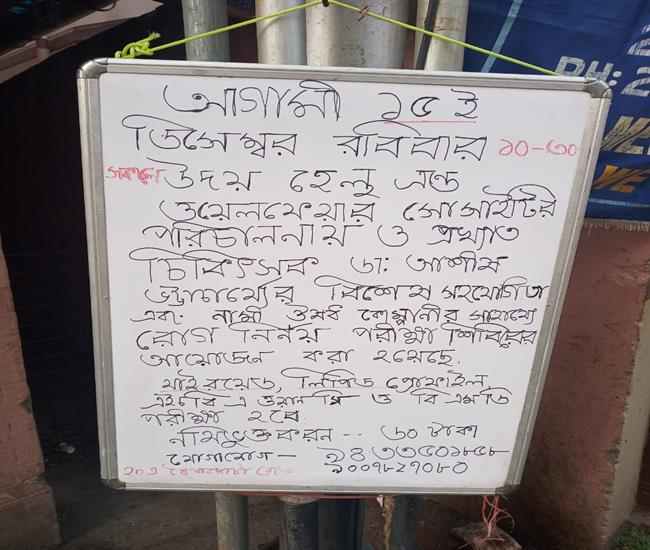 আগামী ১৫ ই
ডিসেম্বর রবিবার ১০-৩০
সকাল উদয় হেল্থ এন্ড
ওয়েলফেয়ার সোসাইটির
পরিচালনায় ও প্রখ্যাত
চিকিৎসক ডাঃ আশীষ
ভট্টাচার্য্যের বিশেষ সহযোগিতা
এবং নামী ঔষধ কোম্পানীর সাহায্যে
রোগ নির্নয় পরীক্ষা শিবিরের
আয়োজন করা হয়েছে.
থাইরয়েড, লিপিড প্রোফাইল,
এইচবি এ ওয়ান সি ও বি এম ডি
পরীক্ষা হবে
নামভুক্তকরন -- ৬০ টাকা
যোগাযোগ – ৯৪৩৩৫০১৮৫৮
৯০০৭৮২৭০৮০
PH: 2